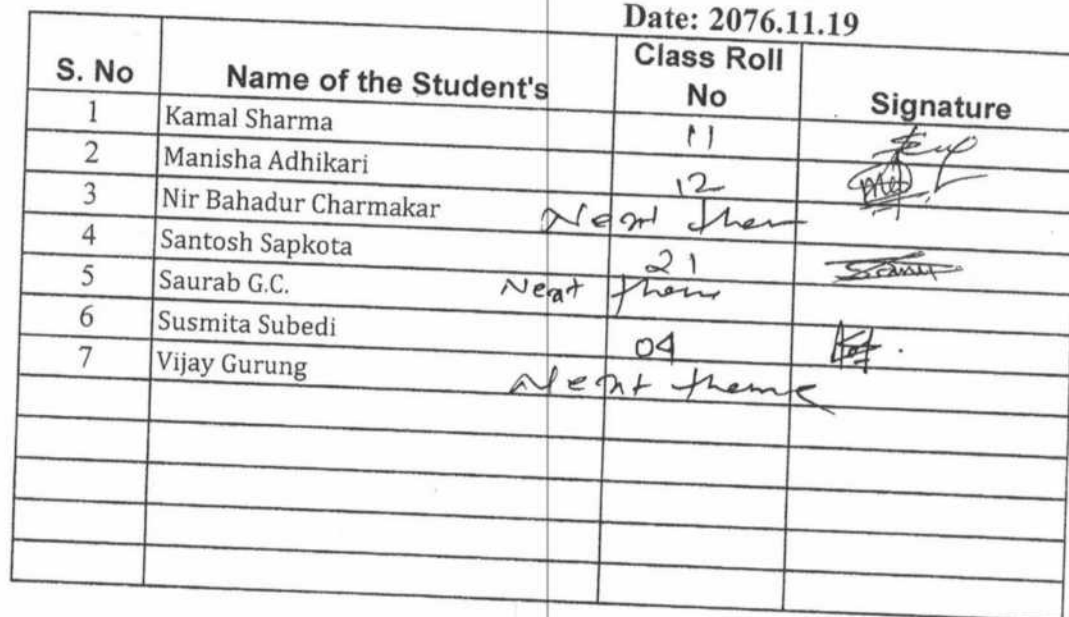 Date: 2076.11.19
S. No Name of the Student's Class Roll No Signature
1 Kamal Sharma 11
2 Manisha Adhikari 12
3 Nir Bahadur Charmakar Next
4 Santosh Sapkota 21
5 Saurab G.C. Next
6 Susmita Subedi 04
7 Vijay Gurung Next theme